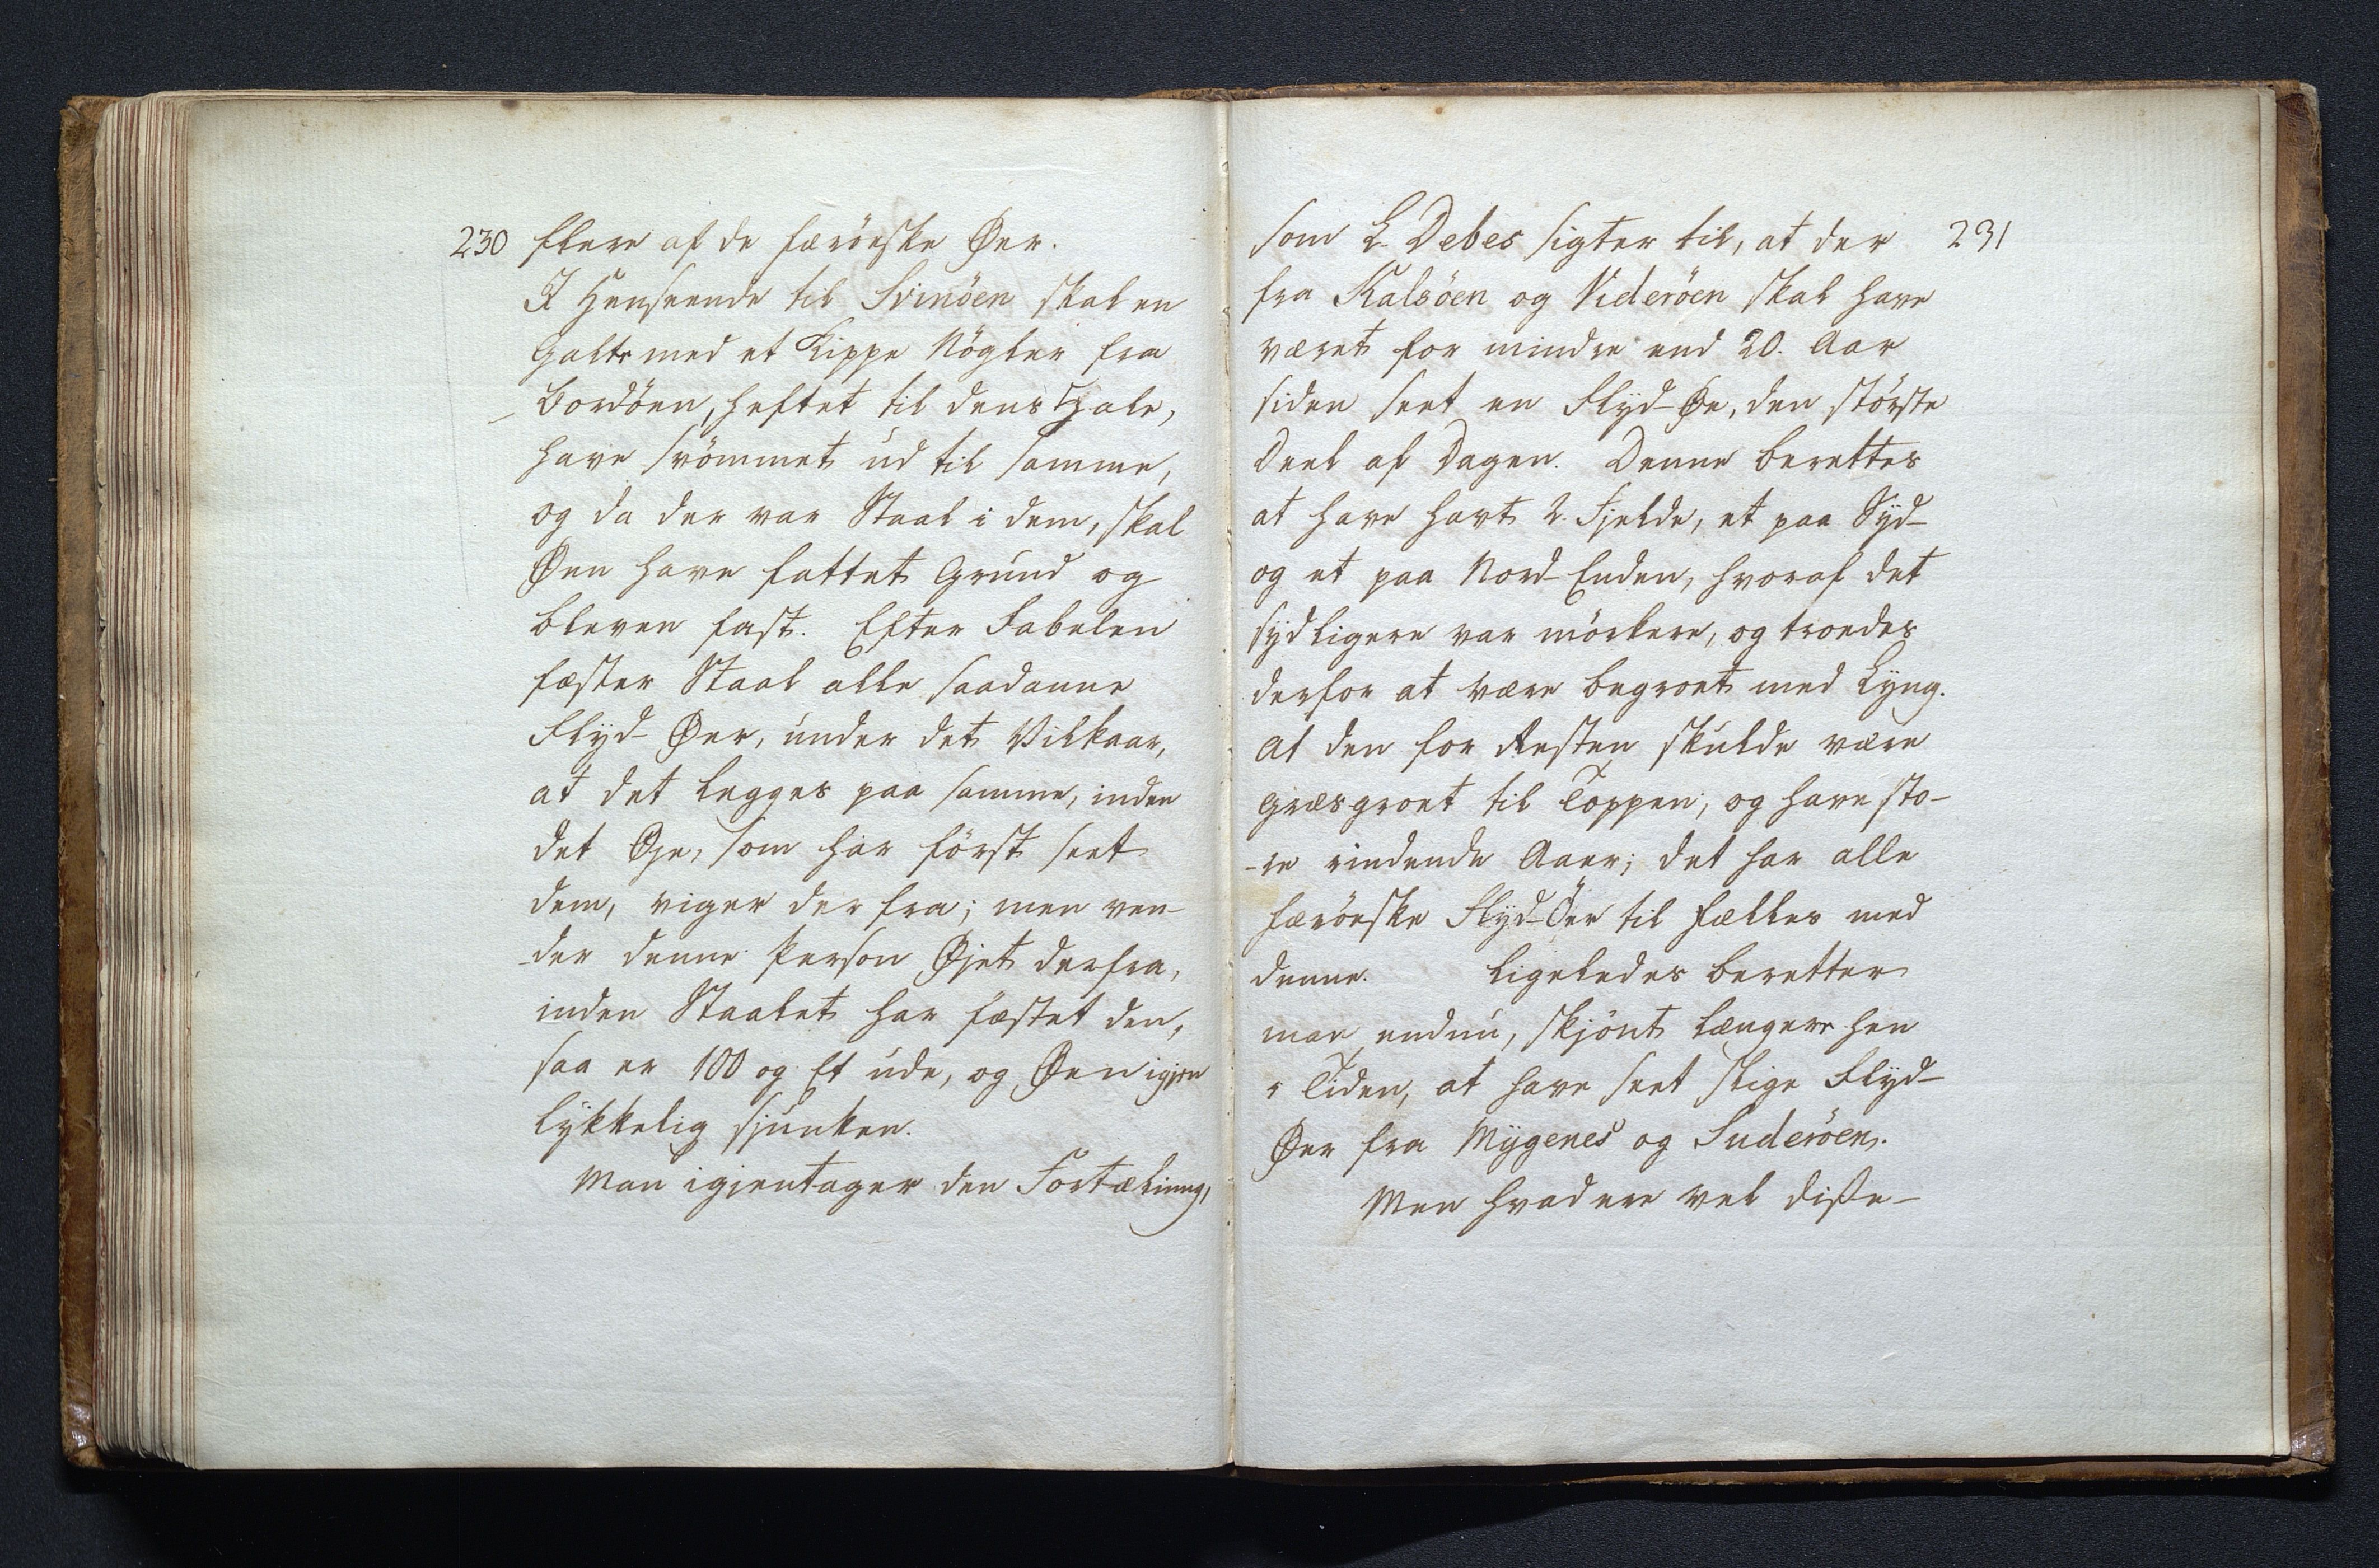 230 flere af de færöeske Øer.
I Henseende til Svinöen skal en
Galte med et Kippe Nögler fra
Bordöen, heftet til dens Hale,
have svömmet ud til samme,
og da der var Staal i dem, skal
Øen have fattet Grund og
bleven fast. Efter Fabelen
fæster Staal alle saadanne
Flyd-Øer, under det Vilkaar,
at det legges paa samme, inden
det Øje, som har först seet
dem, viger der fra; men ven-
-der denne Person Øjet derfra,
inden Staalet har fæstet den,
saa er 100 og Et ude, og Øen igjen
lykkelig sjunken.
Man igjentager den Fortælning,
som L. Debes sigter til, at der 231
fra Kalsöen og Videröen skal have
været for mindre end 20. Aar
siden seet en Flyd-Øe, den störste
Deel af Dagen. Denne berettes
at have havt 2. Fjelde, et paa Syd-
og et paa Nord-Enden, hvoraf det
sydligere var mörkere, og troedes
derfor at være begroet med Lyng.
At den for Resten skulde være
græsgroet til Toppen, og have sto-
-re rindende Aaer; det har alle
færöeske Flyd-Öer til fælles med
denne. Ligeledes beretter
man endnu, skjönt længere hen
i Tiden, at have seet slige Flyd-
Øer fra Mygenes og Suderöen.
Men hvad ere vel disse-